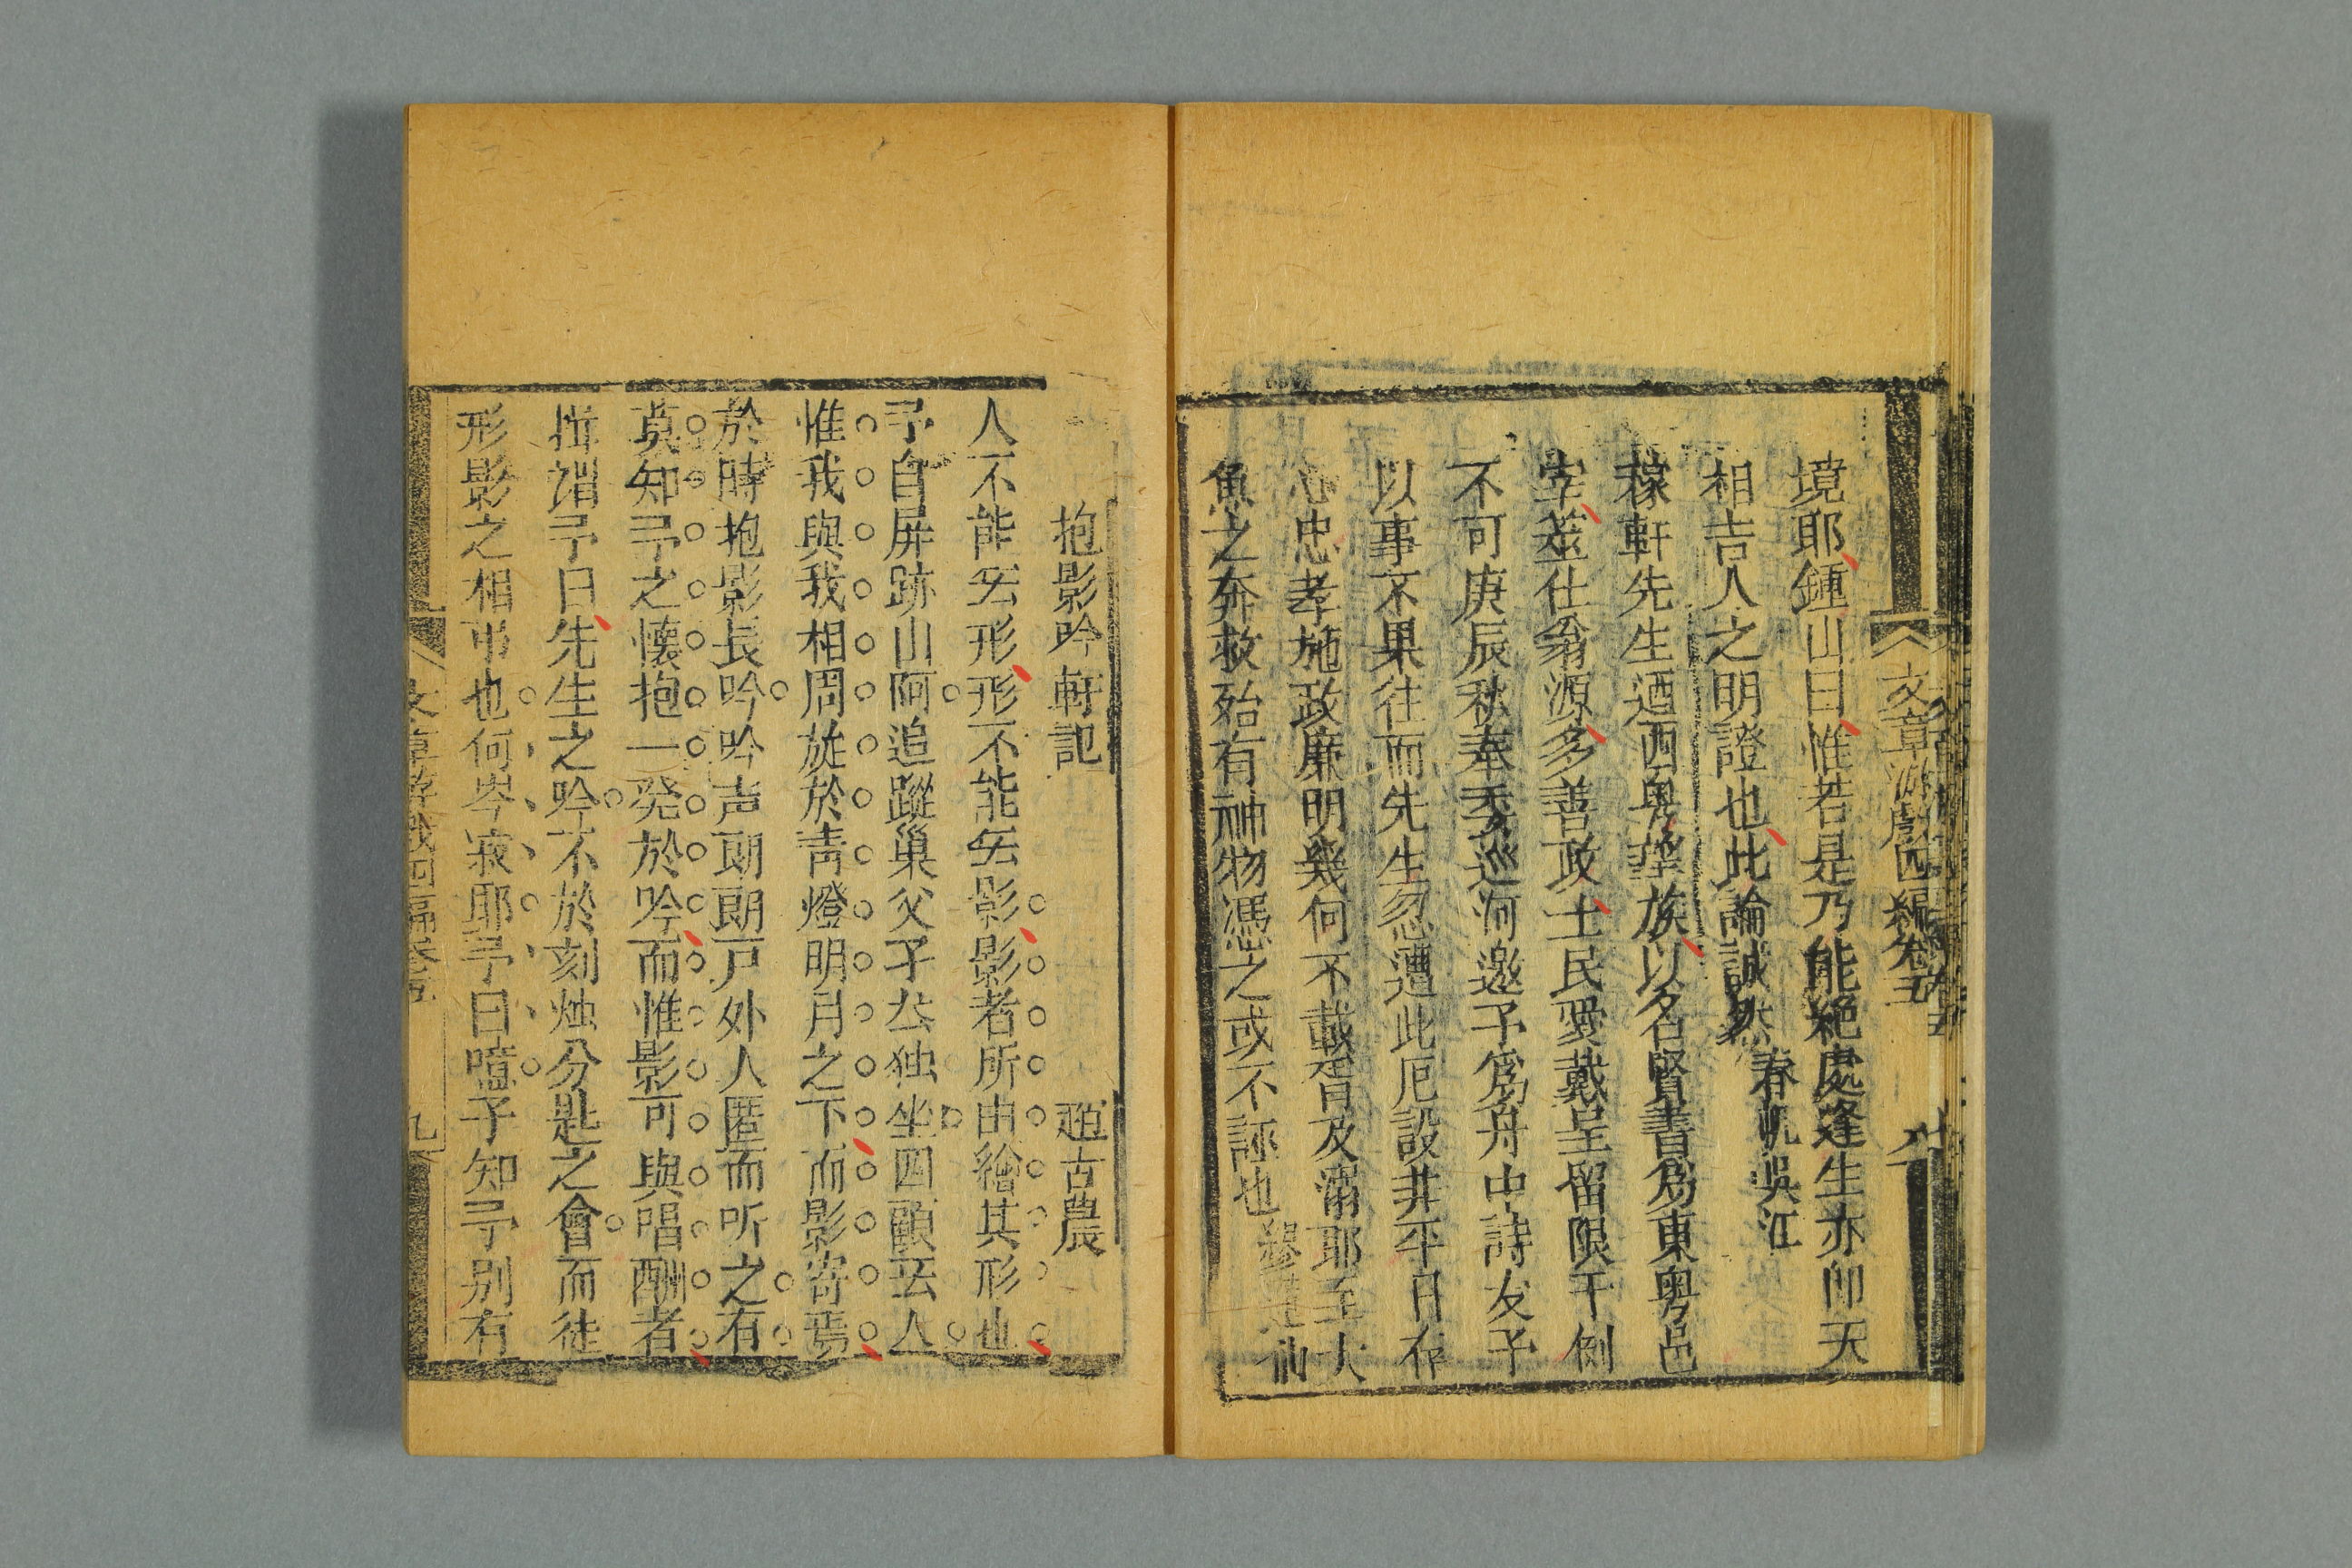 文章游戲四編卷五
八
境耶鍾山曰惟若是乃能絕處逢生亦仰天
相吉人之明證也此論誠然
春帆吳江
稼軒先生迺西粵望族以名賢書爲東粵邑
宰筮仕翁源多善政士民愛戴呈留限于例
不可庚辰秋奉委巡河邀予爲舟中詩友予
以事不果往而先生忽遭此厄設非平日存
心忠孝施政廉明幾何不載胥及溺耶至大
魚之奔救殆有神物憑之或不誣也
仙
抱影吟軒記
趙古農
人不能無形形不能無影影者所由繪其形也
予自屏跡山阿追蹤巢父孑厺独坐四顧無人
惟我與我相周旋於靑燈明月之下而影寄焉
於時抱影長吟吟声朗朗戸外人匿而听之有
莫知予之懷抱一発於吟而惟影可與唱酬者
揖謂予曰先生之吟不於刻烛分匙之會而徒
形影之相弔也何岑寂耶予曰噫子知予别有
文章游戲四編卷五
九